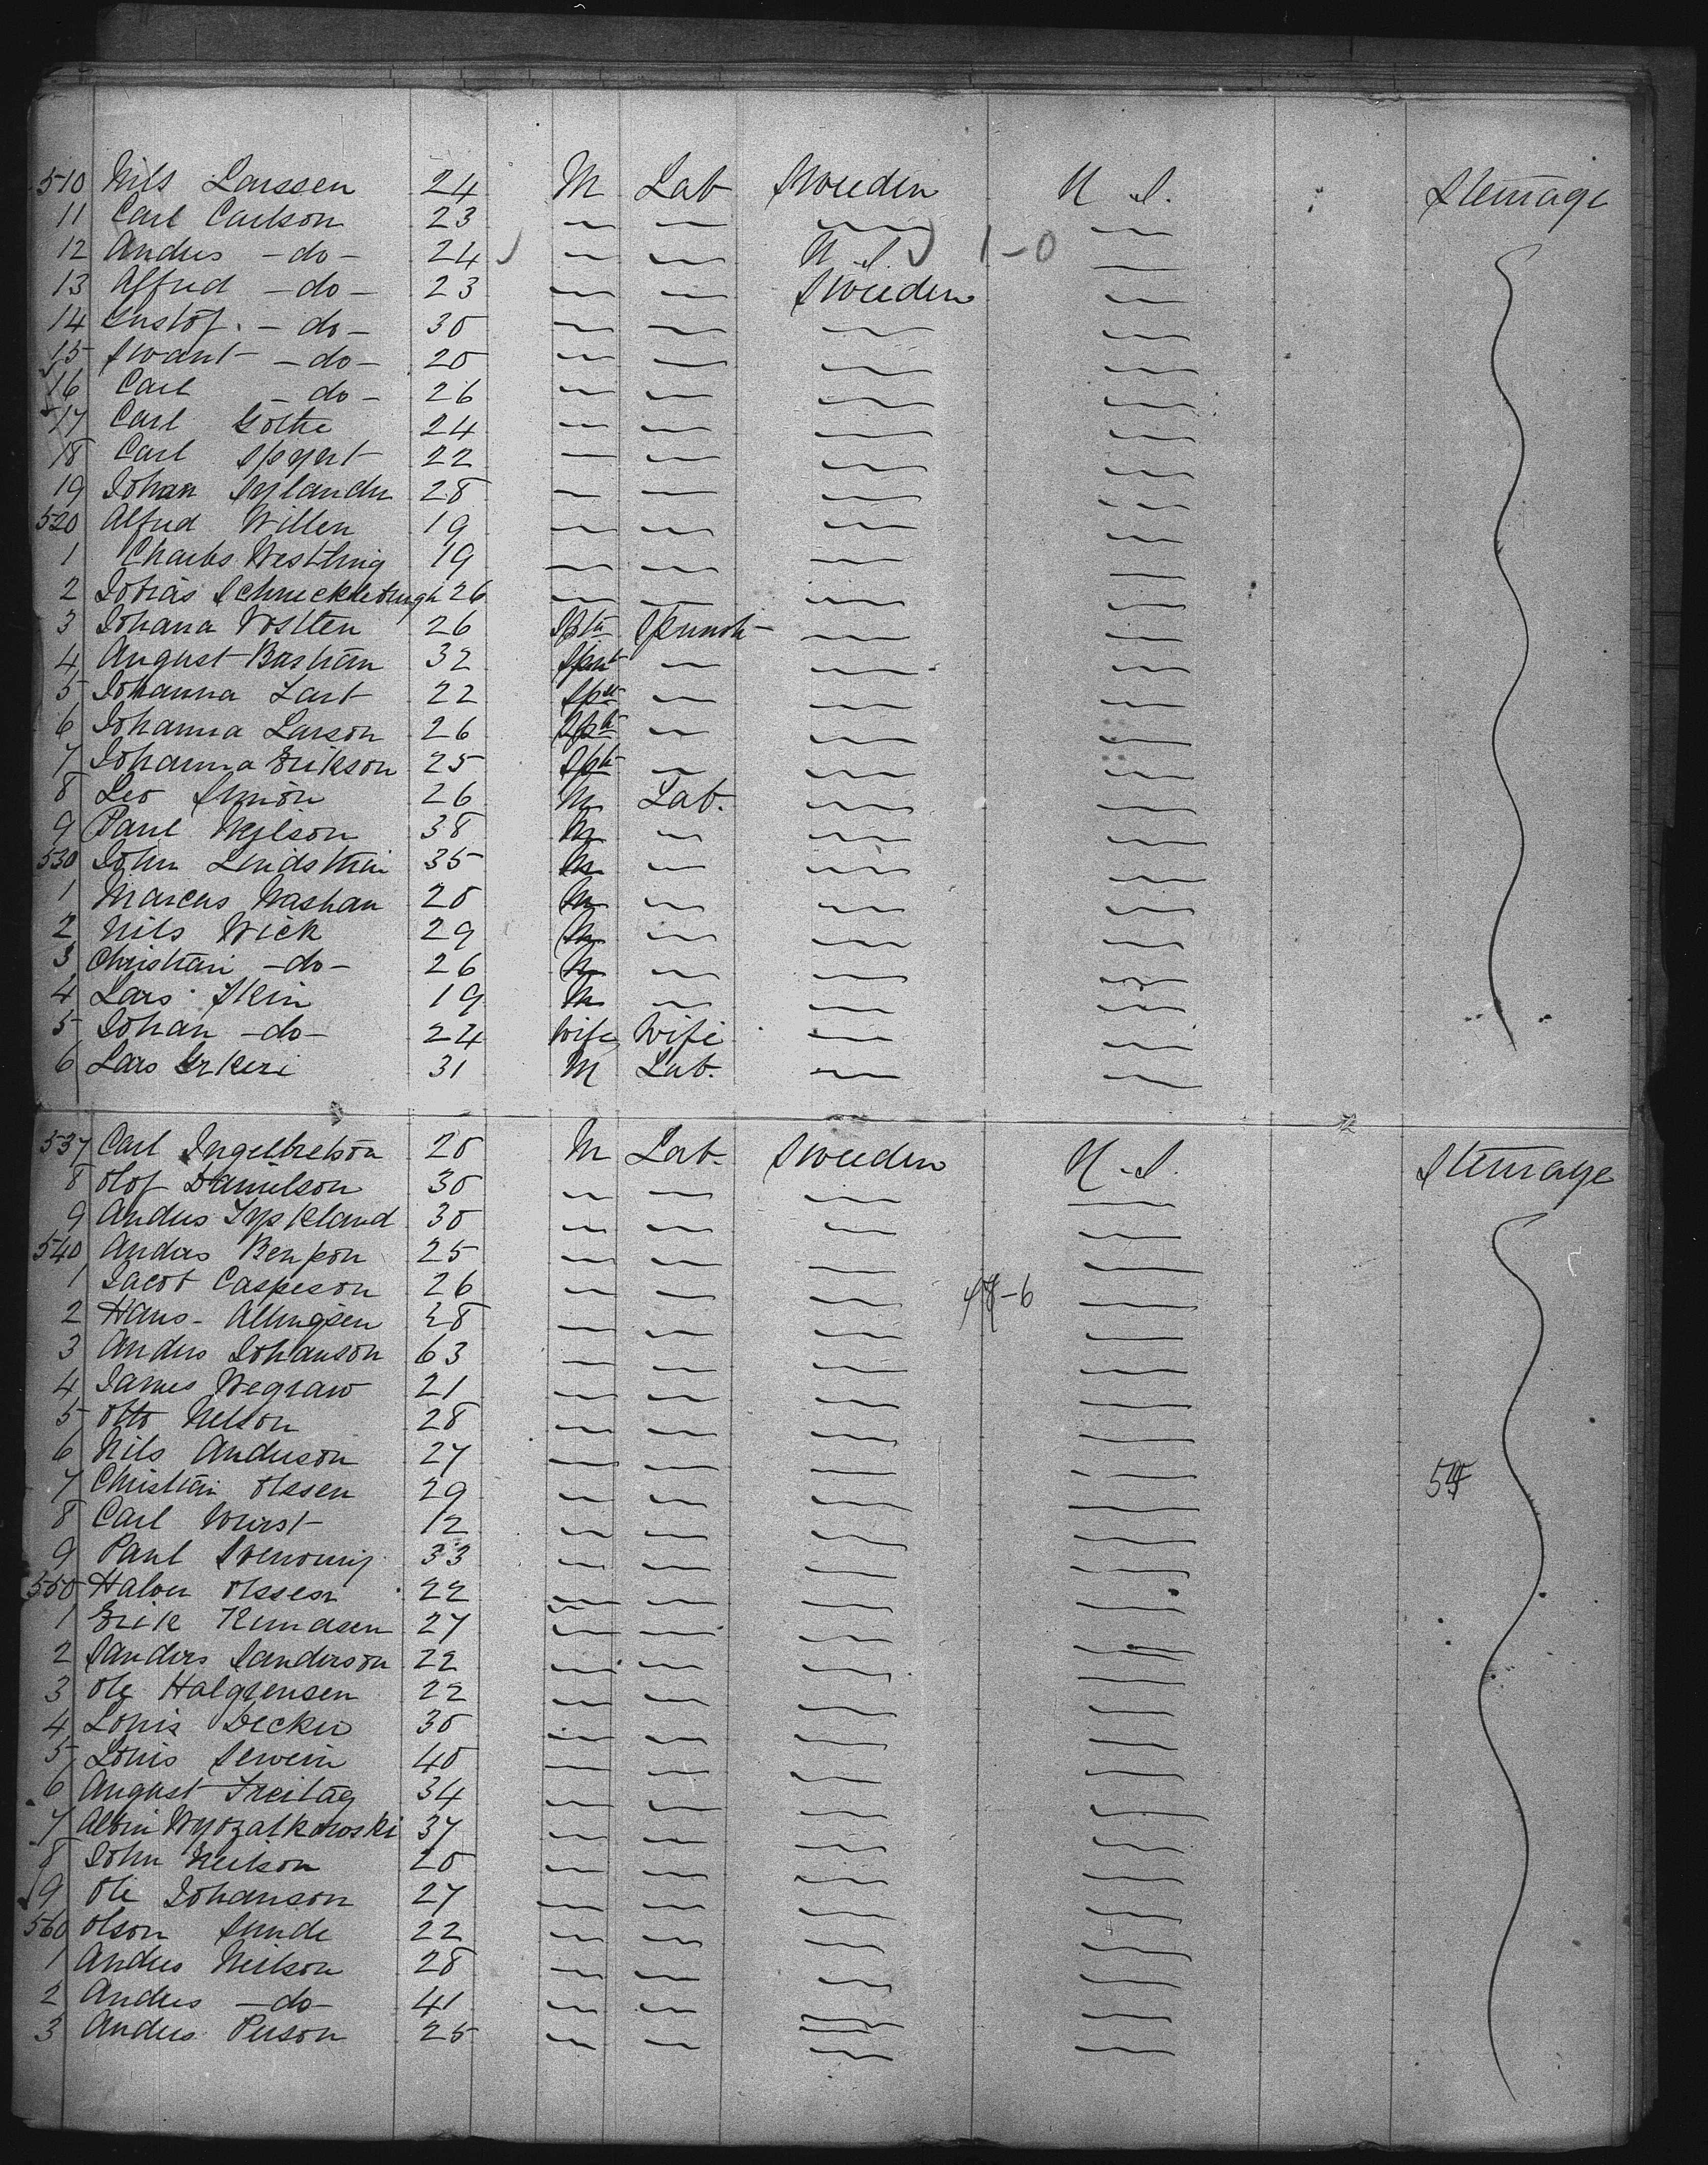 510 Nils Larssen 24 M Lab Sweden U. S. Steerage
11 Carl Carlson 23 — — — —
12 Anders -do- 24 — — U. S. 1-0 —
13 Alfred -do- 23 — — Sweden —
14 Gustof. -do- 30 — — — —
15 Swant -do- 20 — — — —
16 Carl -do- 26 — — — —
17 Carl Göthe 24 — — — —
18 Carl 22 — — — —
19 Johan Sylander 28 — — — —
520 Alfred Willen 19 — — — —
1 Charles Westling 19 — — — —
2 Tobias 26 — — — —
3 Johana 26 Spstr — —
4 August Bastian 32 — — —
5 Johanna Last 22 — — —
6 Johanna Larson 26 Spstr — — —
7 Johanna Erikson 25 Spstr — — —
8 Leo Simon 26 M Lab. — —
9 Paul Nylson 38 M — — —
530 John Lindstrin 35 M — — —
1 Marcus Washan 20 M — — —
2 Nils Wick 29 M — — —
3 Christian -do- 26 M — — —
4 Lars Skin 19 M — — —
5 Johan -do- 24 Wife Wife — —
6 Lars 31 M Lab. — —
537 Carl Ingelbretson 20 M Lab. Sweden U. S. Steerage
8 Olof Danielson 30 — — — —
9 Anders 30 — — — —
540 Anders Benson 25 — — — —
1 Jacob Casperson 26 — — — —
2 Hans 28 — — — —
3 Anders Johanson 63 — — — —
4 James Wegraw 21 — — — —
5 Otto Nelson 28 — — — —
6 Nils Anderson 27 — — — —
7 Christian Olssen 29 — — — —
8 Carl Wurst 12 — — — —
9 Paul 33 — — — —
550 Halver Olssen 22 — — — —
1 Erik Knudsen 27 — — — —
2 Sanders Sanderson 22 — — — —
3 Ole Halgrensen 22 — — — —
4 Louis Decker 30 — — — —
5 Louis Serwein 40 — — — —
6 August Freitag 34 — — — —
7 Albin Wyozatkowski 37 — — — —
8 John Neilson 20 — — — —
9 Ole Johanson 27 — — — —
560 Olson Sunde 22 — — — —
1 Anders Neilson 28 — — — —
2 Anders -do- 41 — — — —
3 Anders Person 25 — — — —